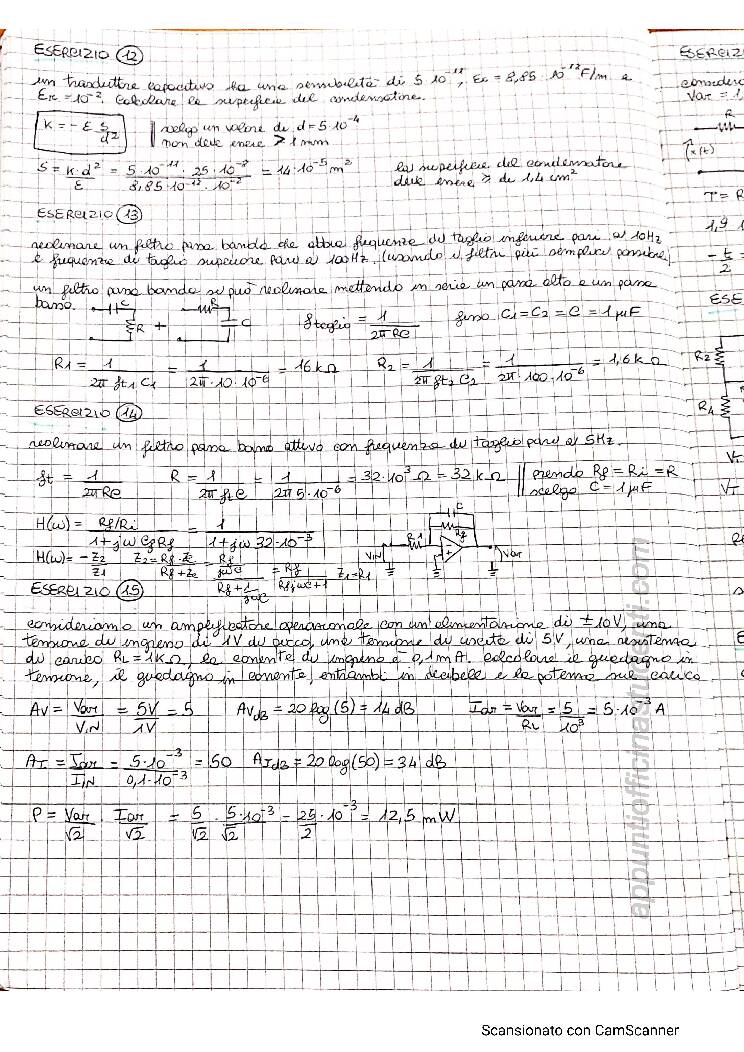 ESERCIZIO 12
un trasduttore capacitivo ha una sensibilità di 5 10⁻¹¹, E₀ = 8,85 · 10⁻¹² F/m e
Er = 10⁻². Calcolare la superficie del condensatore.
K = - ε S/d² || scelgo un valore di d = 5·10⁻⁴
non deve essere > 1 mm
S = K·d²/ε = 5·10⁻¹¹ · 25·10⁻⁸ / 8,85·10⁻¹² · 10⁻² = 14·10⁻⁵ m² la superficie del condensatore
deve essere ≥ di 1,4 cm²
ESERCIZIO 13
realizzare un filtro passa banda che abbia frequenza di taglio inferiore pari a 10Hz
e frequenza di taglio superiore pari a 100Hz. (usando i filtri più semplici possibile)
un filtro passa banda si può realizzare mettendo in serie un passa alto e un passa
basso. C R + R C f taglio = 1/2πRC fisso C1 = C2 = C = 1 μF
R1 = 1/2π ft1 C1 = 1/2π·10·10⁻⁶ = 16 kΩ R2 = 1/2π ft2 C2 = 1/2π·100·10⁻⁶ = 1,6 kΩ
ESERCIZIO 14
realizzare un filtro passa basso attivo con frequenza di taglio pari a 5Hz.
ft = 1/2πRC R = 1/2π ft C = 1/2π 5·10⁻⁶ = 32·10³ Ω = 32 kΩ || prendo Rf = Ri = R
scelgo C = 1 μF
H(ω) = Rf/Ri / 1+jω Cf Rf = 1 / 1+jω 32·10⁻³ C Rf R1 VIN Vout
H(ω) = -Z2/Z1 Z2 = Rf·Zc / Rf+Zc = Rf/jωC / Rf+1/jωC = Rf / RfjωC+1 Z1 = R1
ESERCIZIO 15
consideriamo un amplificatore operazionale con un'alimentazione di ±10V, una
tensione di ingresso di 1V di picco, una tensione di uscita di 5V, una resistenza
di carico RL = 1kΩ, la corrente di ingresso è 0,1 mA. Calcolare il guadagno in
tensione, il guadagno in corrente, entrambi in decibel e la potenza sul carico
AV = Vout/VIN = 5V/1V = 5 AVdB = 20 log(5) = 14 dB Iout = Vout/RL = 5/10³ = 5·10⁻³ A
AI = Iout/IIN = 5·10⁻³ / 0,1·10⁻³ = 50 AIdB = 20 log(50) = 34 dB
P = Vout/√2 · Iout/√2 = 5/√2 · 5·10⁻³/√2 = 25·10⁻³/2 = 12,5 mW
ESERCIZ
considera
Var = 1,
R
x(t)
T = R
1,9 1
-t/2 =
ESE
R2
R4
VT
VT
appuntiofficinastumenti.com
Scansionato con CamScanner